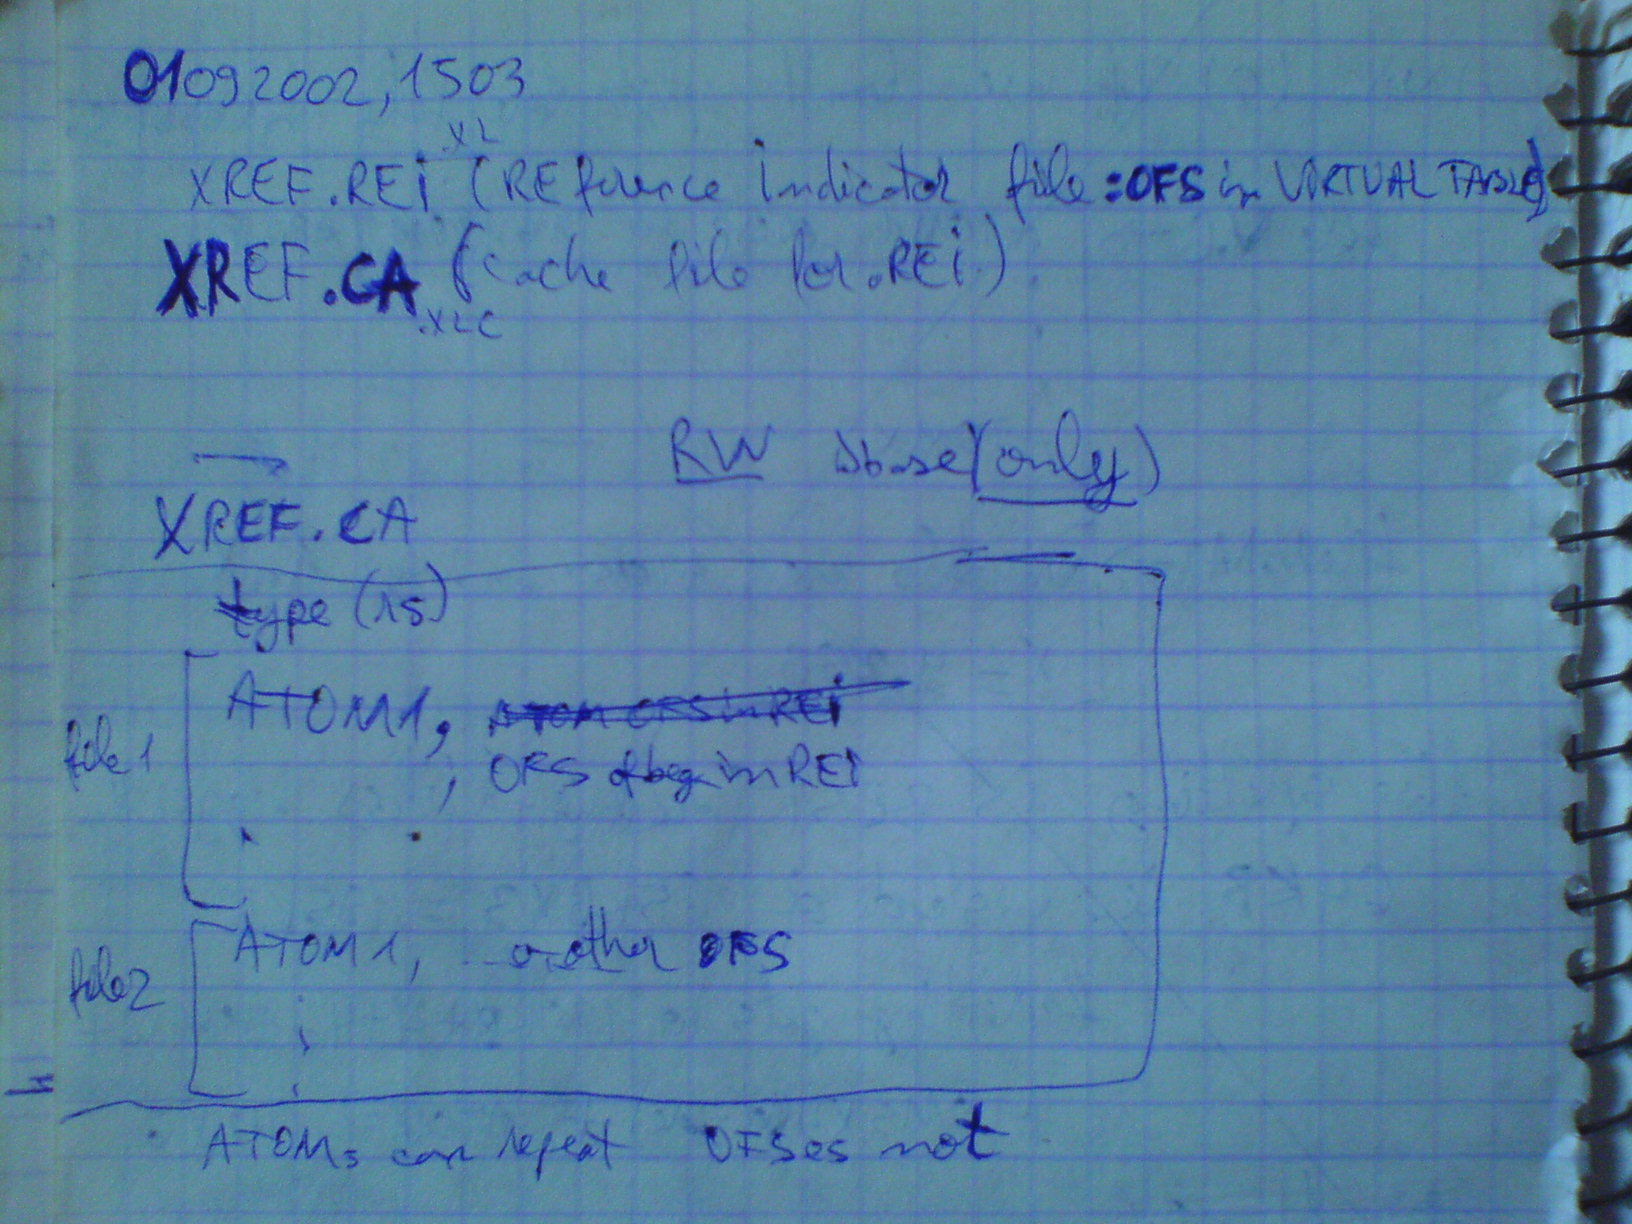 01092002, 1503
.XL
XREF.REI (REference indicator file :OFS in VIRTUAL TABLE)
XREF.CA (cache file for .REI.)
.XLC
RW dbase (only)
XREF.CA
type (15)
file 1
ATOM1, ATOM OFS in REI
, OFS of beg in REI
file 2
ATOM1, another OFS
ATOMs can repeat OFSes not